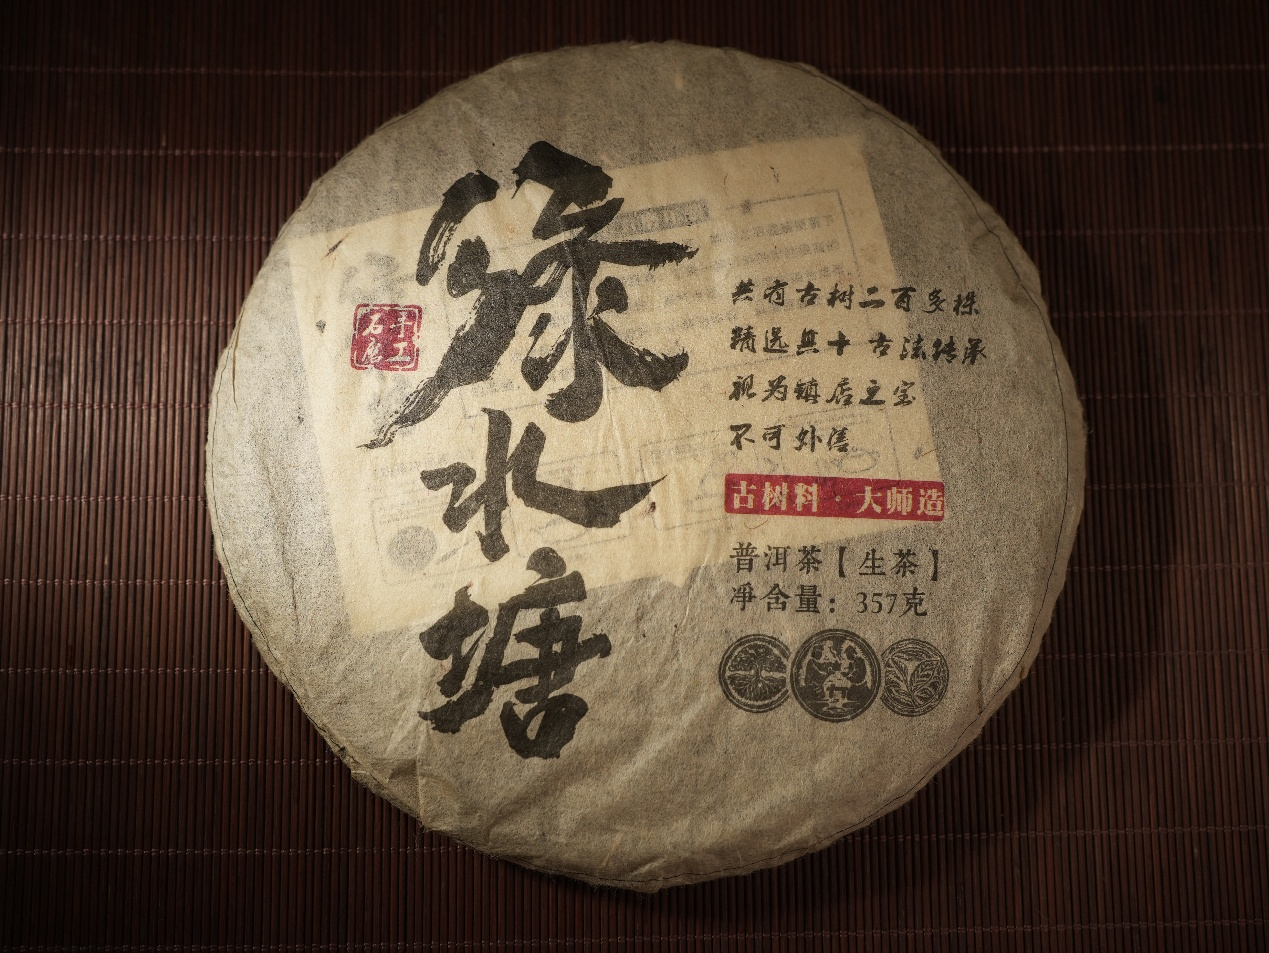 绿水塘
手工
石磨
共有古树二百多株
精选其十 古法传承
视为镇店之宝
不可外售
古树料·大师造
普洱茶【生茶】
凈含量：357克